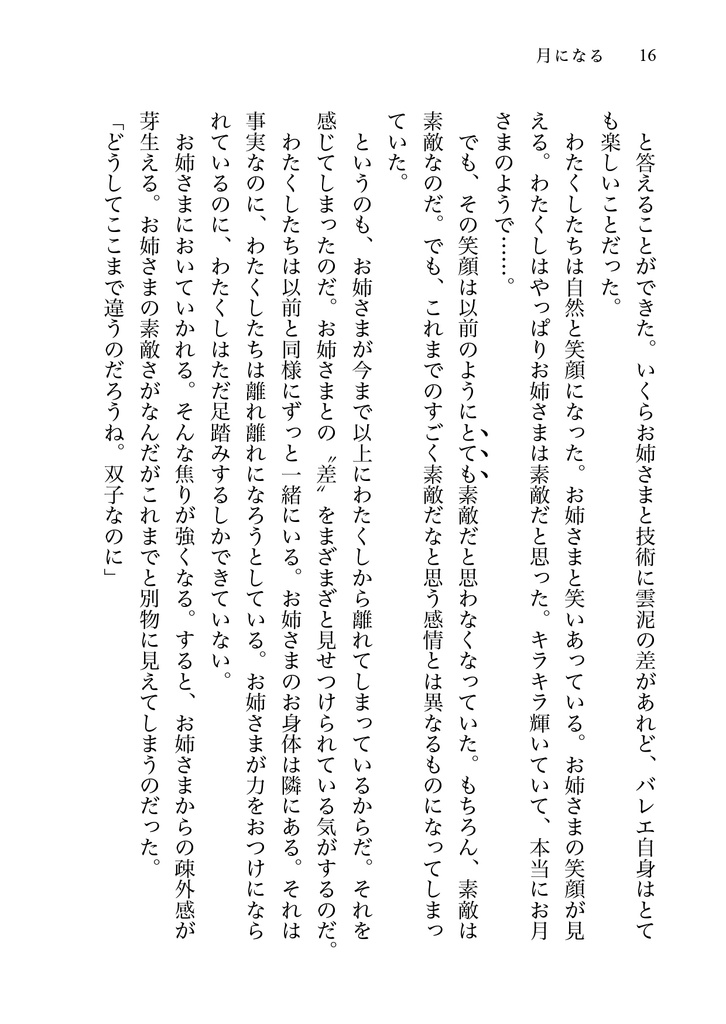 月になる 16
と答えることができた。いくらお姉さまと技術に雲泥の差があれど、バレエ自身はとて
も楽しいことだった。
わたくしたちは自然と笑顔になった。お姉さまと笑いあっている。お姉さまの笑顔が見
える。わたくしはやっぱりお姉さまは素敵だと思った。キラキラ輝いていて、本当にお月
さまのようで……。
でも、その笑顔は以前のようにとても素敵だと思わなくなっていた。もちろん、素敵は
素敵なのだ。でも、これまでのすごく素敵だなと思う感情とは異なるものになってしまっ
ていた。
というのも、お姉さまが今まで以上にわたくしから離れてしまっているからだ。それを
感じてしまったのだ。お姉さまとの〝差〟をまざまざと見せつけられている気がするのだ。
わたくしたちは以前と同様にずっと一緒にいる。お姉さまのお身体は隣にある。それは
事実なのに、わたくしたちは離れ離れになろうとしている。お姉さまが力をおつけになら
れているのに、わたくしはただ足踏みするしかできていない。
お姉さまにおいていかれる。そんな焦りが強くなる。すると、お姉さまからの疎外感が
芽生える。お姉さまの素敵さがなんだがこれまでと別物に見えてしまうのだった。
「どうしてここまで違うのだろうね。双子なのに」